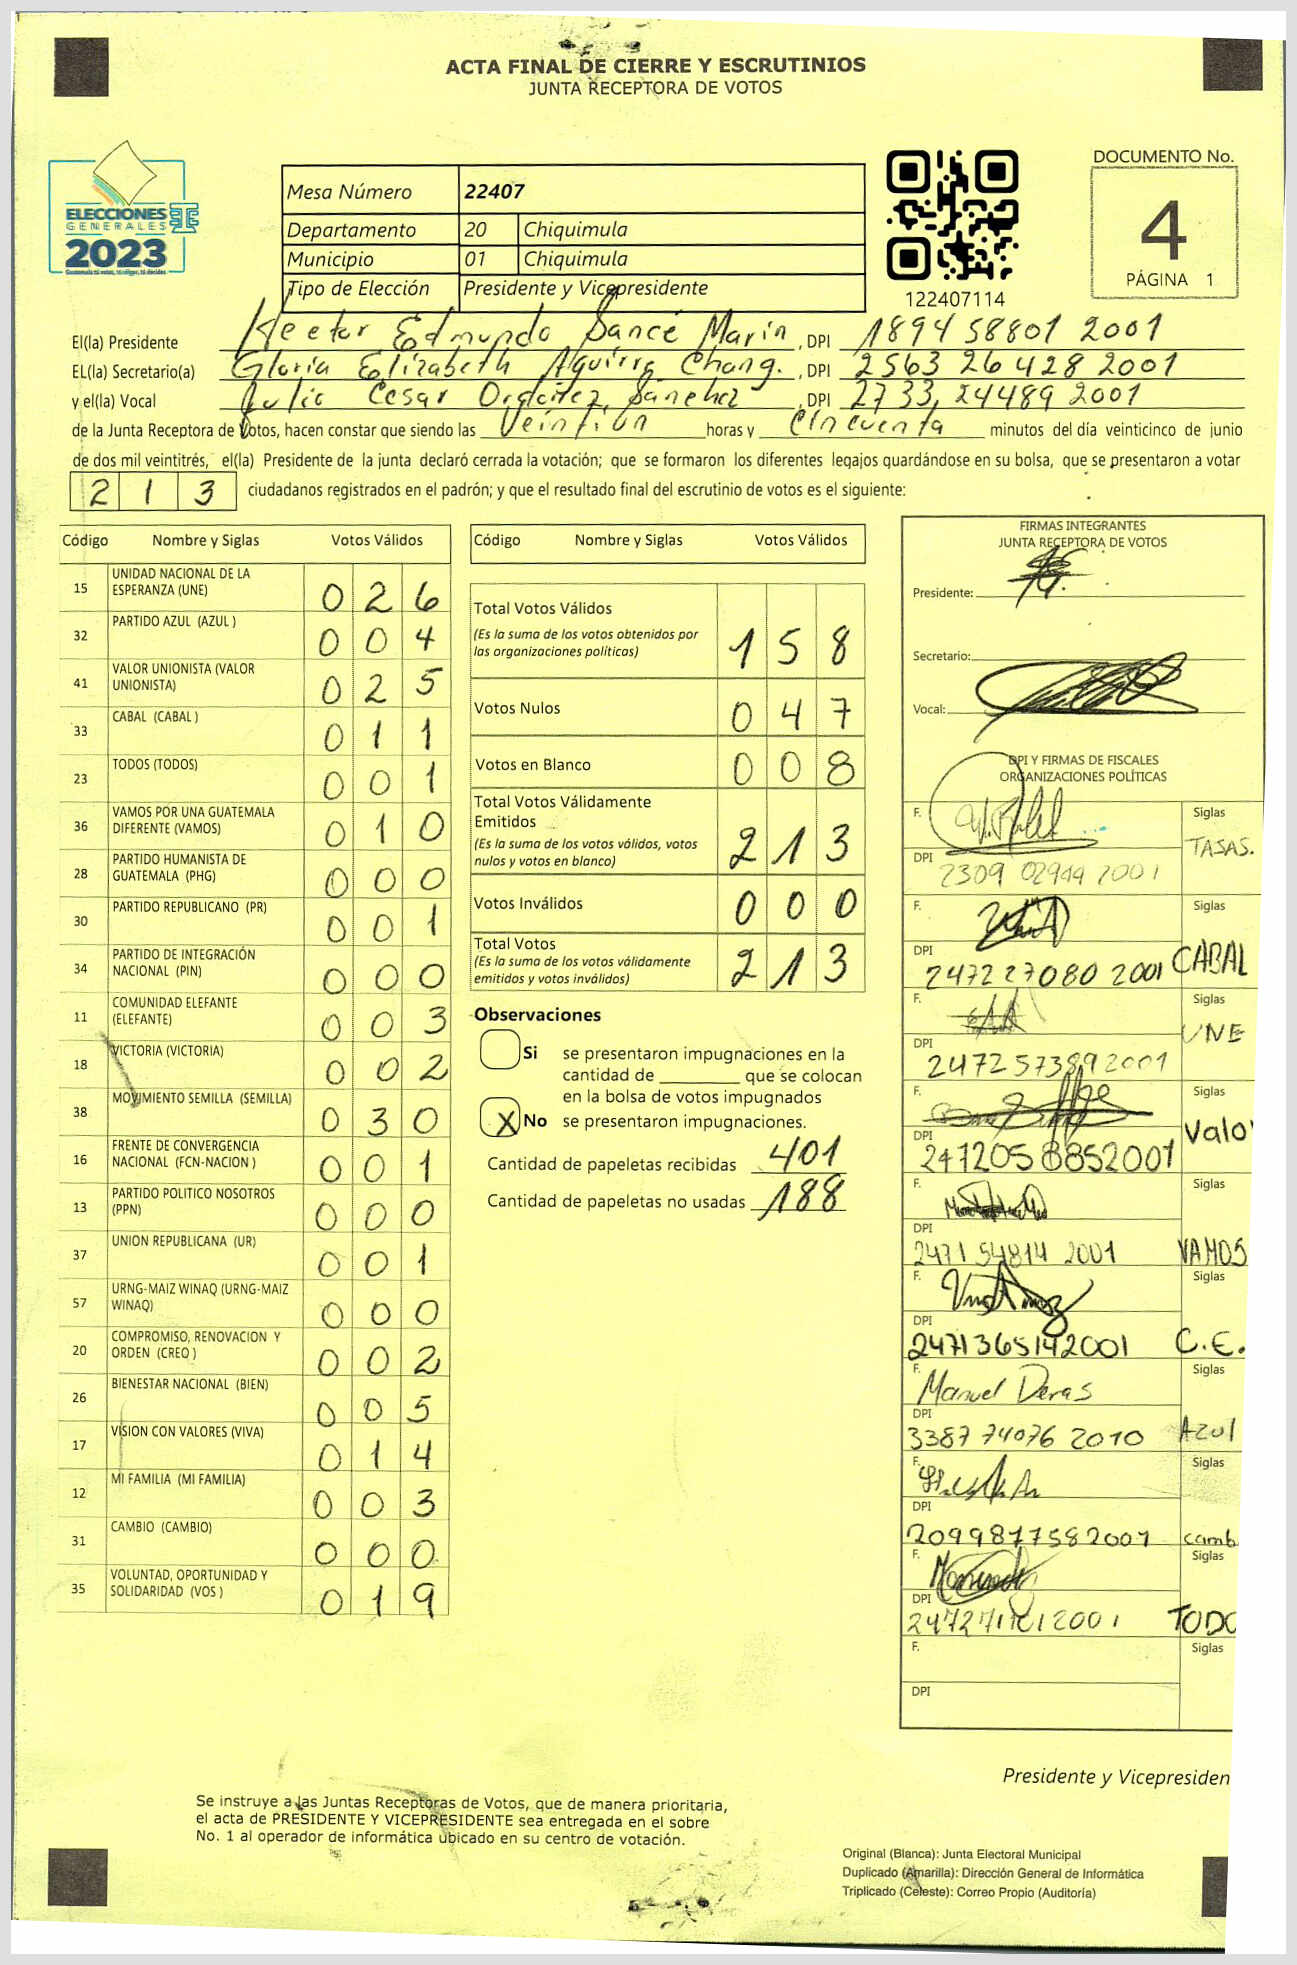 ACTA FINAL DE CIERRE Y ESCRUTINIOS
JUNTA RECEPTORA DE VOTOS
ELECCIONES
GENERALES
2023
Mesa Número 22407
Departamento 20 Chiquimula
Municipio 01 Chiquimula
Tipo de Elección Presidente y Vicepresidente
122407114
DOCUMENTO No.
4
PÁGINA 1
El(la) Presidente Hector Edmundo Sancé Marin, DPI 1894 58801 2001
EL(la) Secretario(a) Gloria Elizabeth Aguirre Chang. , DPI 2563 26428 2001
y el(la) Vocal Julio Cesar Ordoñez Sánchez , DPI 2733, 24489 2001
de la Junta Receptora de Votos, hacen constar que siendo las Veintiun horas y Cincuenta minutos del día veinticinco de junio
de dos mil veintitrés, el(la) Presidente de la junta declaró cerrada la votación; que se formaron los diferentes legajos guardándose en su bolsa, que se presentaron a votar
2 1 3 ciudadanos registrados en el padrón; y que el resultado final del escrutinio de votos es el siguiente:
Código Nombre y Siglas Votos Válidos
15 UNIDAD NACIONAL DE LA ESPERANZA (UNE) 0 2 6
32 PARTIDO AZUL (AZUL ) 0 0 4
41 VALOR UNIONISTA (VALOR UNIONISTA) 0 2 5
33 CABAL (CABAL ) 0 1 1
23 TODOS (TODOS) 0 0 1
36 VAMOS POR UNA GUATEMALA DIFERENTE (VAMOS) 0 1 0
28 PARTIDO HUMANISTA DE GUATEMALA (PHG) 0 0 0
30 PARTIDO REPUBLICANO (PR) 0 0 1
34 PARTIDO DE INTEGRACIÓN NACIONAL (PIN) 0 0 0
11 COMUNIDAD ELEFANTE (ELEFANTE) 0 0 3
18 VICTORIA (VICTORIA) 0 0 2
38 MOVIMIENTO SEMILLA (SEMILLA) 0 3 0
16 FRENTE DE CONVERGENCIA NACIONAL (FCN-NACION ) 0 0 1
13 PARTIDO POLITICO NOSOTROS (PPN) 0 0 0
37 UNION REPUBLICANA (UR) 0 0 1
57 URNG-MAIZ WINAQ (URNG-MAIZ WINAQ) 0 0 0
20 COMPROMISO, RENOVACION Y ORDEN (CREO ) 0 0 2
26 BIENESTAR NACIONAL (BIEN) 0 0 5
17 VISION CON VALORES (VIVA) 0 1 4
12 MI FAMILIA (MI FAMILIA) 0 0 3
31 CAMBIO (CAMBIO) 0 0 0
35 VOLUNTAD, OPORTUNIDAD Y SOLIDARIDAD (VOS ) 0 1 9
Código Nombre y Siglas Votos Válidos
Total Votos Válidos 1 5 8
(Es la suma de los votos obtenidos por
las organizaciones políticas)
Votos Nulos 0 4 7
Votos en Blanco 0 0 8
Total Votos Válidamente
Emitidos 2 1 3
(Es la suma de los votos válidos, votos
nulos y votos en blanco)
Votos Inválidos 0 0 0
Total Votos 2 1 3
(Es la suma de los votos válidamente
emitidos y votos inválidos)
Observaciones
Si se presentaron impugnaciones en la
cantidad de ________ que se colocan
en la bolsa de votos impugnados
X No se presentaron impugnaciones.
Cantidad de papeletas recibidas 401
Cantidad de papeletas no usadas 188
FIRMAS INTEGRANTES
JUNTA RECEPTORA DE VOTOS
Presidente:
Secretario:
Vocal:
DPI Y FIRMAS DE FISCALES
ORGANIZACIONES POLÍTICAS
F. Siglas
TASAS.
DPI 2309 02944 2001
F. Siglas
DPI 2472 27080 2001 CABAL
F. Siglas
UNE
DPI 2472 57389 2001
F. Siglas
Valo
DPI 2472058852001
F. Siglas
DPI 2471 54814 2001 VAMOS
F. Siglas
DPI 2471365142001 C.E.
F. Manuel Deras Siglas
DPI 3387 74076 2010 Azul
F. Siglas
DPI 2099877582001 camb
F. Siglas
DPI TODO
F. Siglas
DPI
Presidente y Vicepresiden
Se instruye a las Juntas Receptoras de Votos, que de manera prioritaria,
el acta de PRESIDENTE Y VICEPRESIDENTE sea entregada en el sobre
No. 1 al operador de informática ubicado en su centro de votación.
Original (Blanca): Junta Electoral Municipal
Duplicado (Amarilla): Dirección General de Informática
Triplicado (Celeste): Correo Propio (Auditoría)